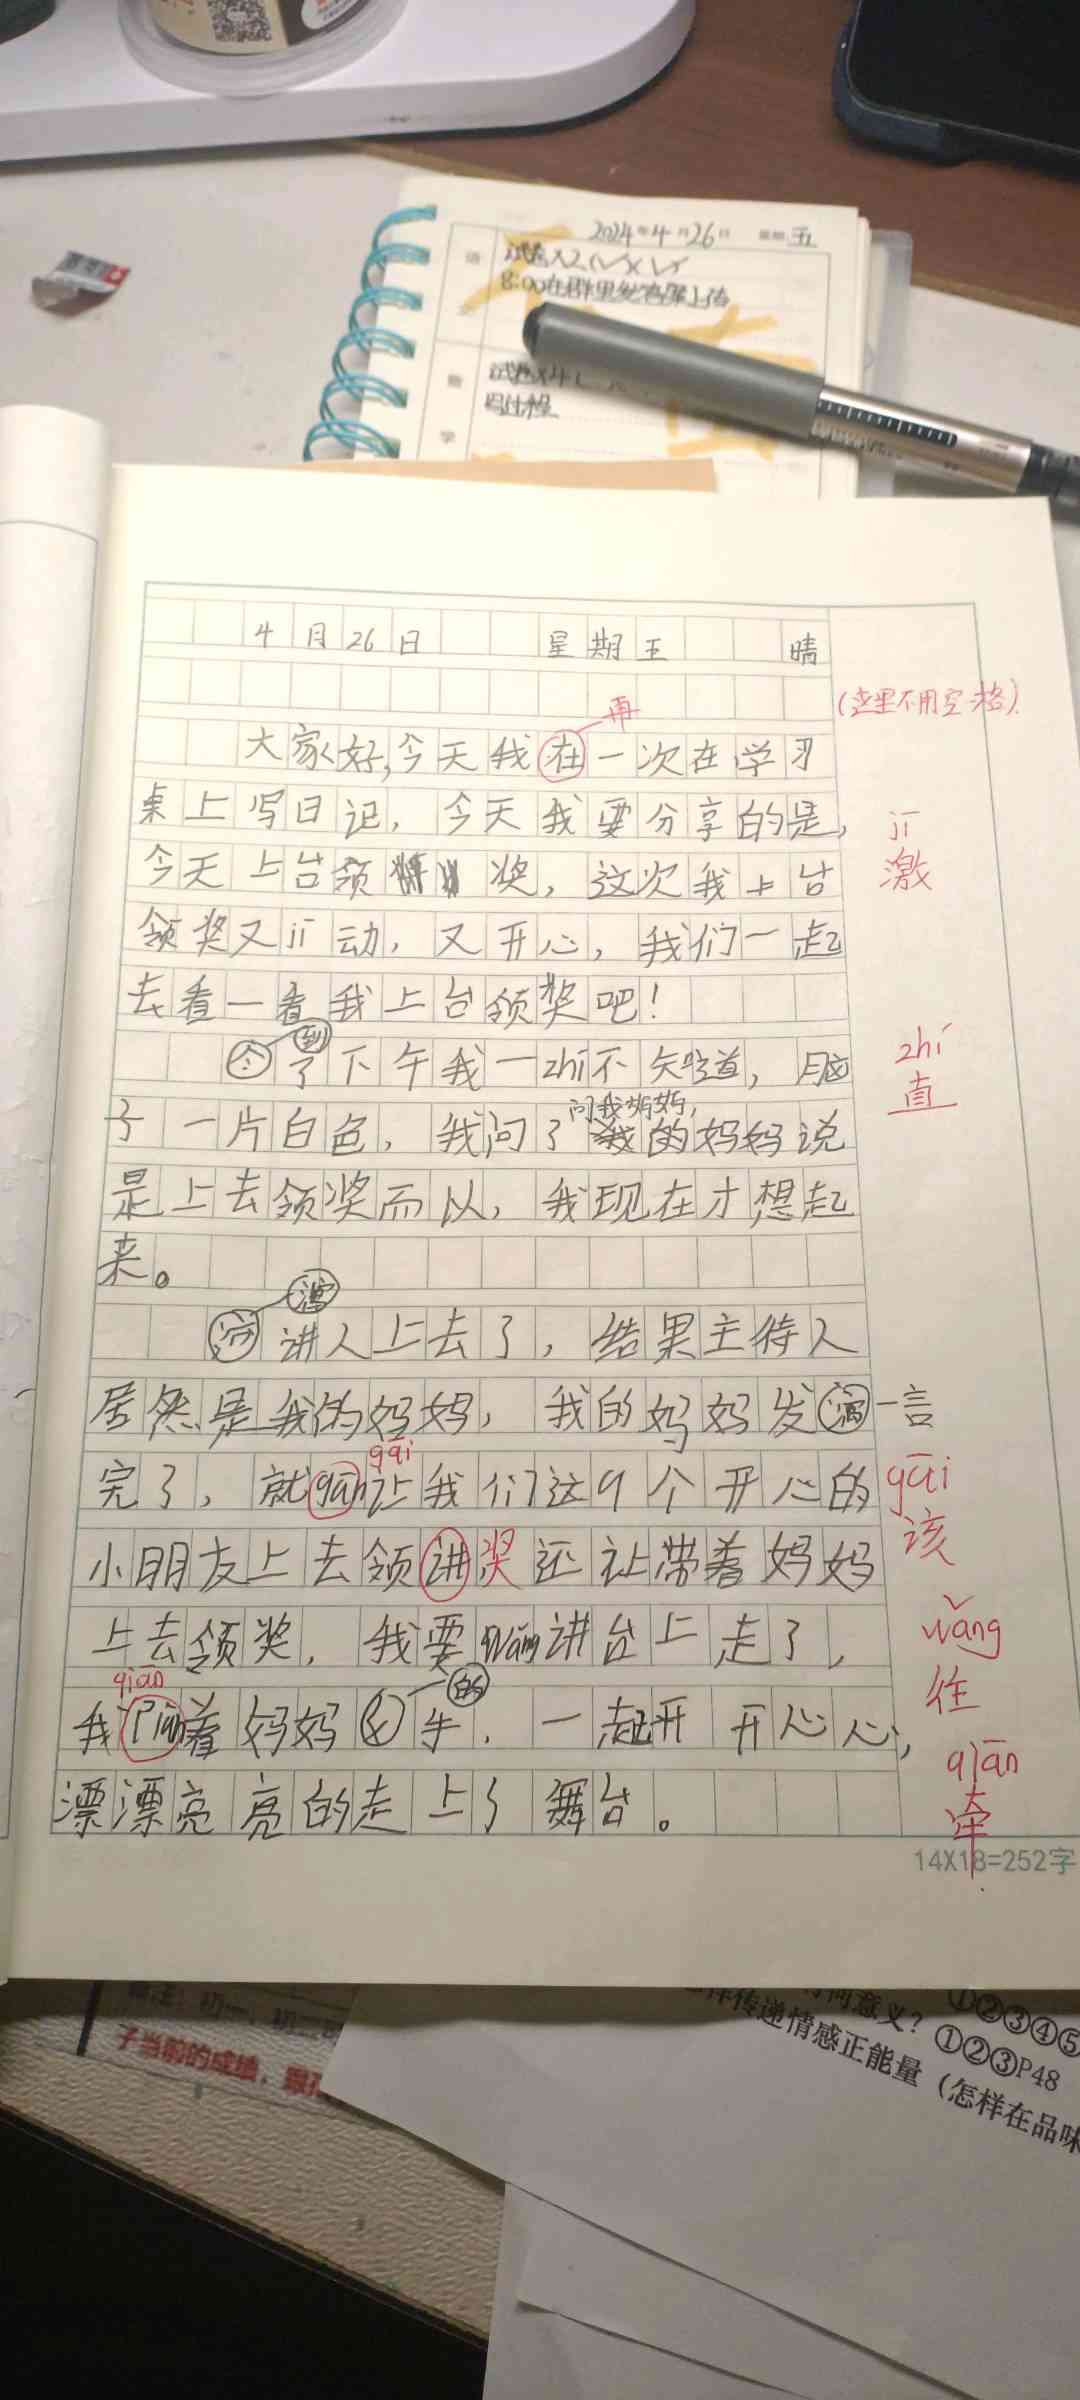 2024年4月26日 星期五
8:00在群里发答案上传
4月26日 星期五 晴
(这里不用空一格)
再
大家好,今天我在一次在学习
桌上写日记，今天我要分享的是，
jī
激
今天上台领奖，这次我上台
领奖又jī动，又开心，我们一起
去看一看我上台领奖吧！
到
今了下午我一zhí不知道，脑
zhí
直
问我妈妈，
子一片白色，我问了我的妈妈说
是上去领奖而以，我现在才想起
来。
演
讲人上去了，结果主待人
居然是我的妈妈，我的妈妈发演一言
gāi
完了，就gān让我们这9个开心的
gāi
该
小朋友上去领讲奖还让带着妈妈
上去领奖，我要wǎng讲台上走了，
wǎng
往
qiān
的
我piān着妈妈手．一起开开心心，
qiān
牵
漂漂亮亮的走上了舞台。
14X18=252字
子当前的成绩，
何意义？①②③④⑤
样传递情感正能量（怎样在品味
①②③P48